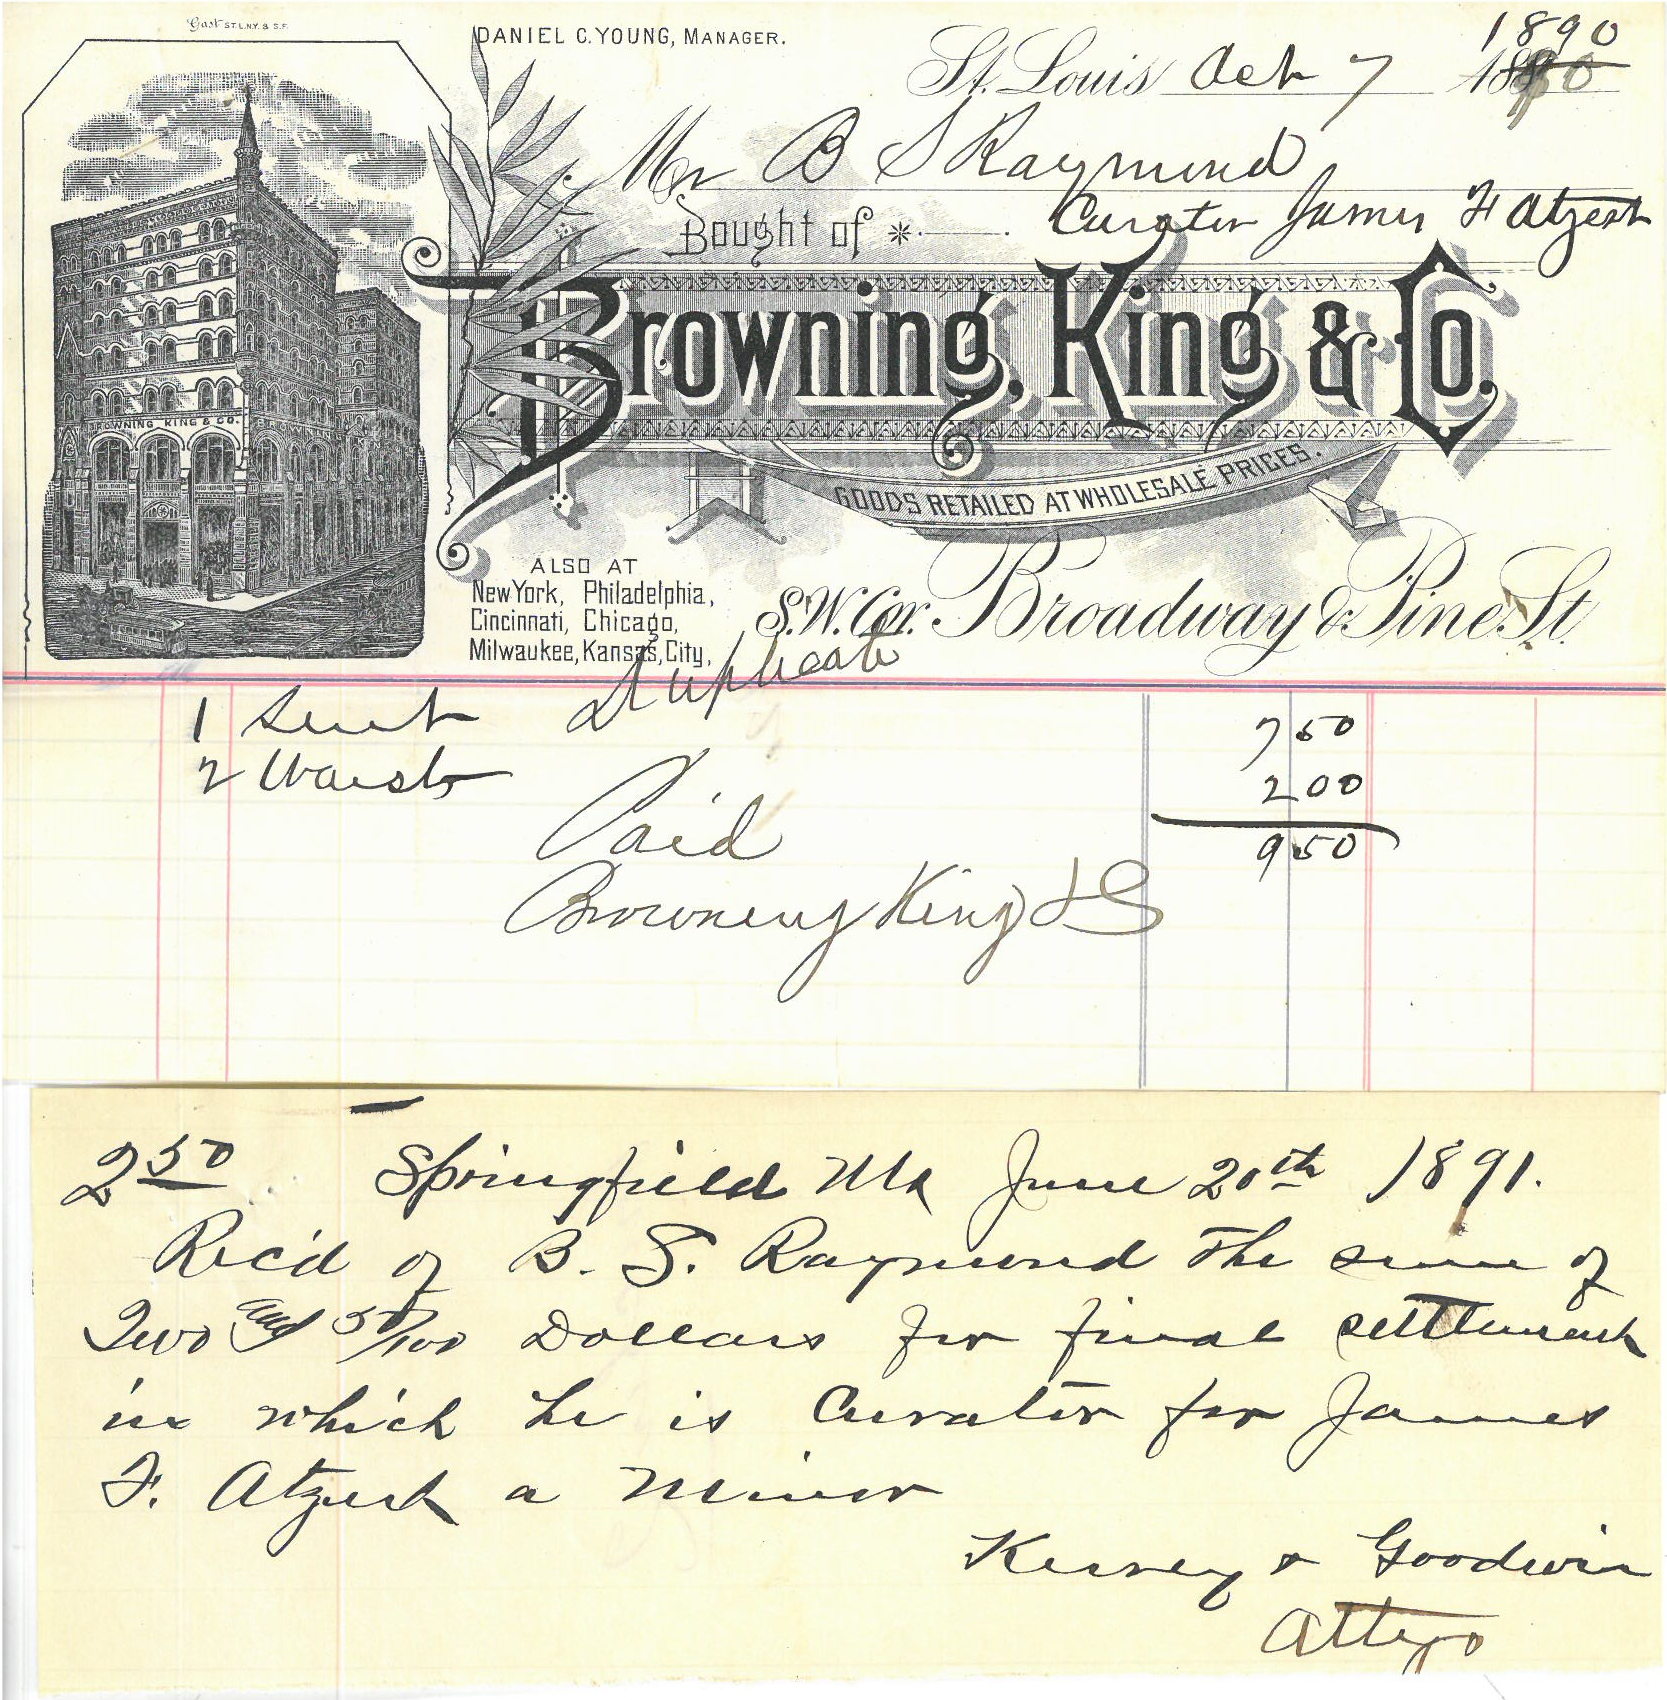 Gast ST.L.N.Y. & S.F.
DANIEL C. YOUNG, MANAGER.
1890
St. Louis Oct 7 1880
Mr B S Raymond
Bought of Curator James F Atzert
Browning, King & Co.
BROWNING KING & CO.
GOODS RETAILED AT WHOLESALE PRICES.
ALSO AT
New York, Philadelphia,
Cincinnati, Chicago,
Milwaukee, Kansas, City,
S.W. Cor. Broadway & Pine St.
Duplicate
1 Suit 7 50
2 Waists 2 00
9 50
Paid
Browning King & Co
2 50 Springfield Mo June 20th 1891.
Rec'd of B. S. Raymond the sum of
Two and 50/100 Dollars for final settlement
in which he is Curator for James
F. Atzert a minor
& Goodwin
Attys